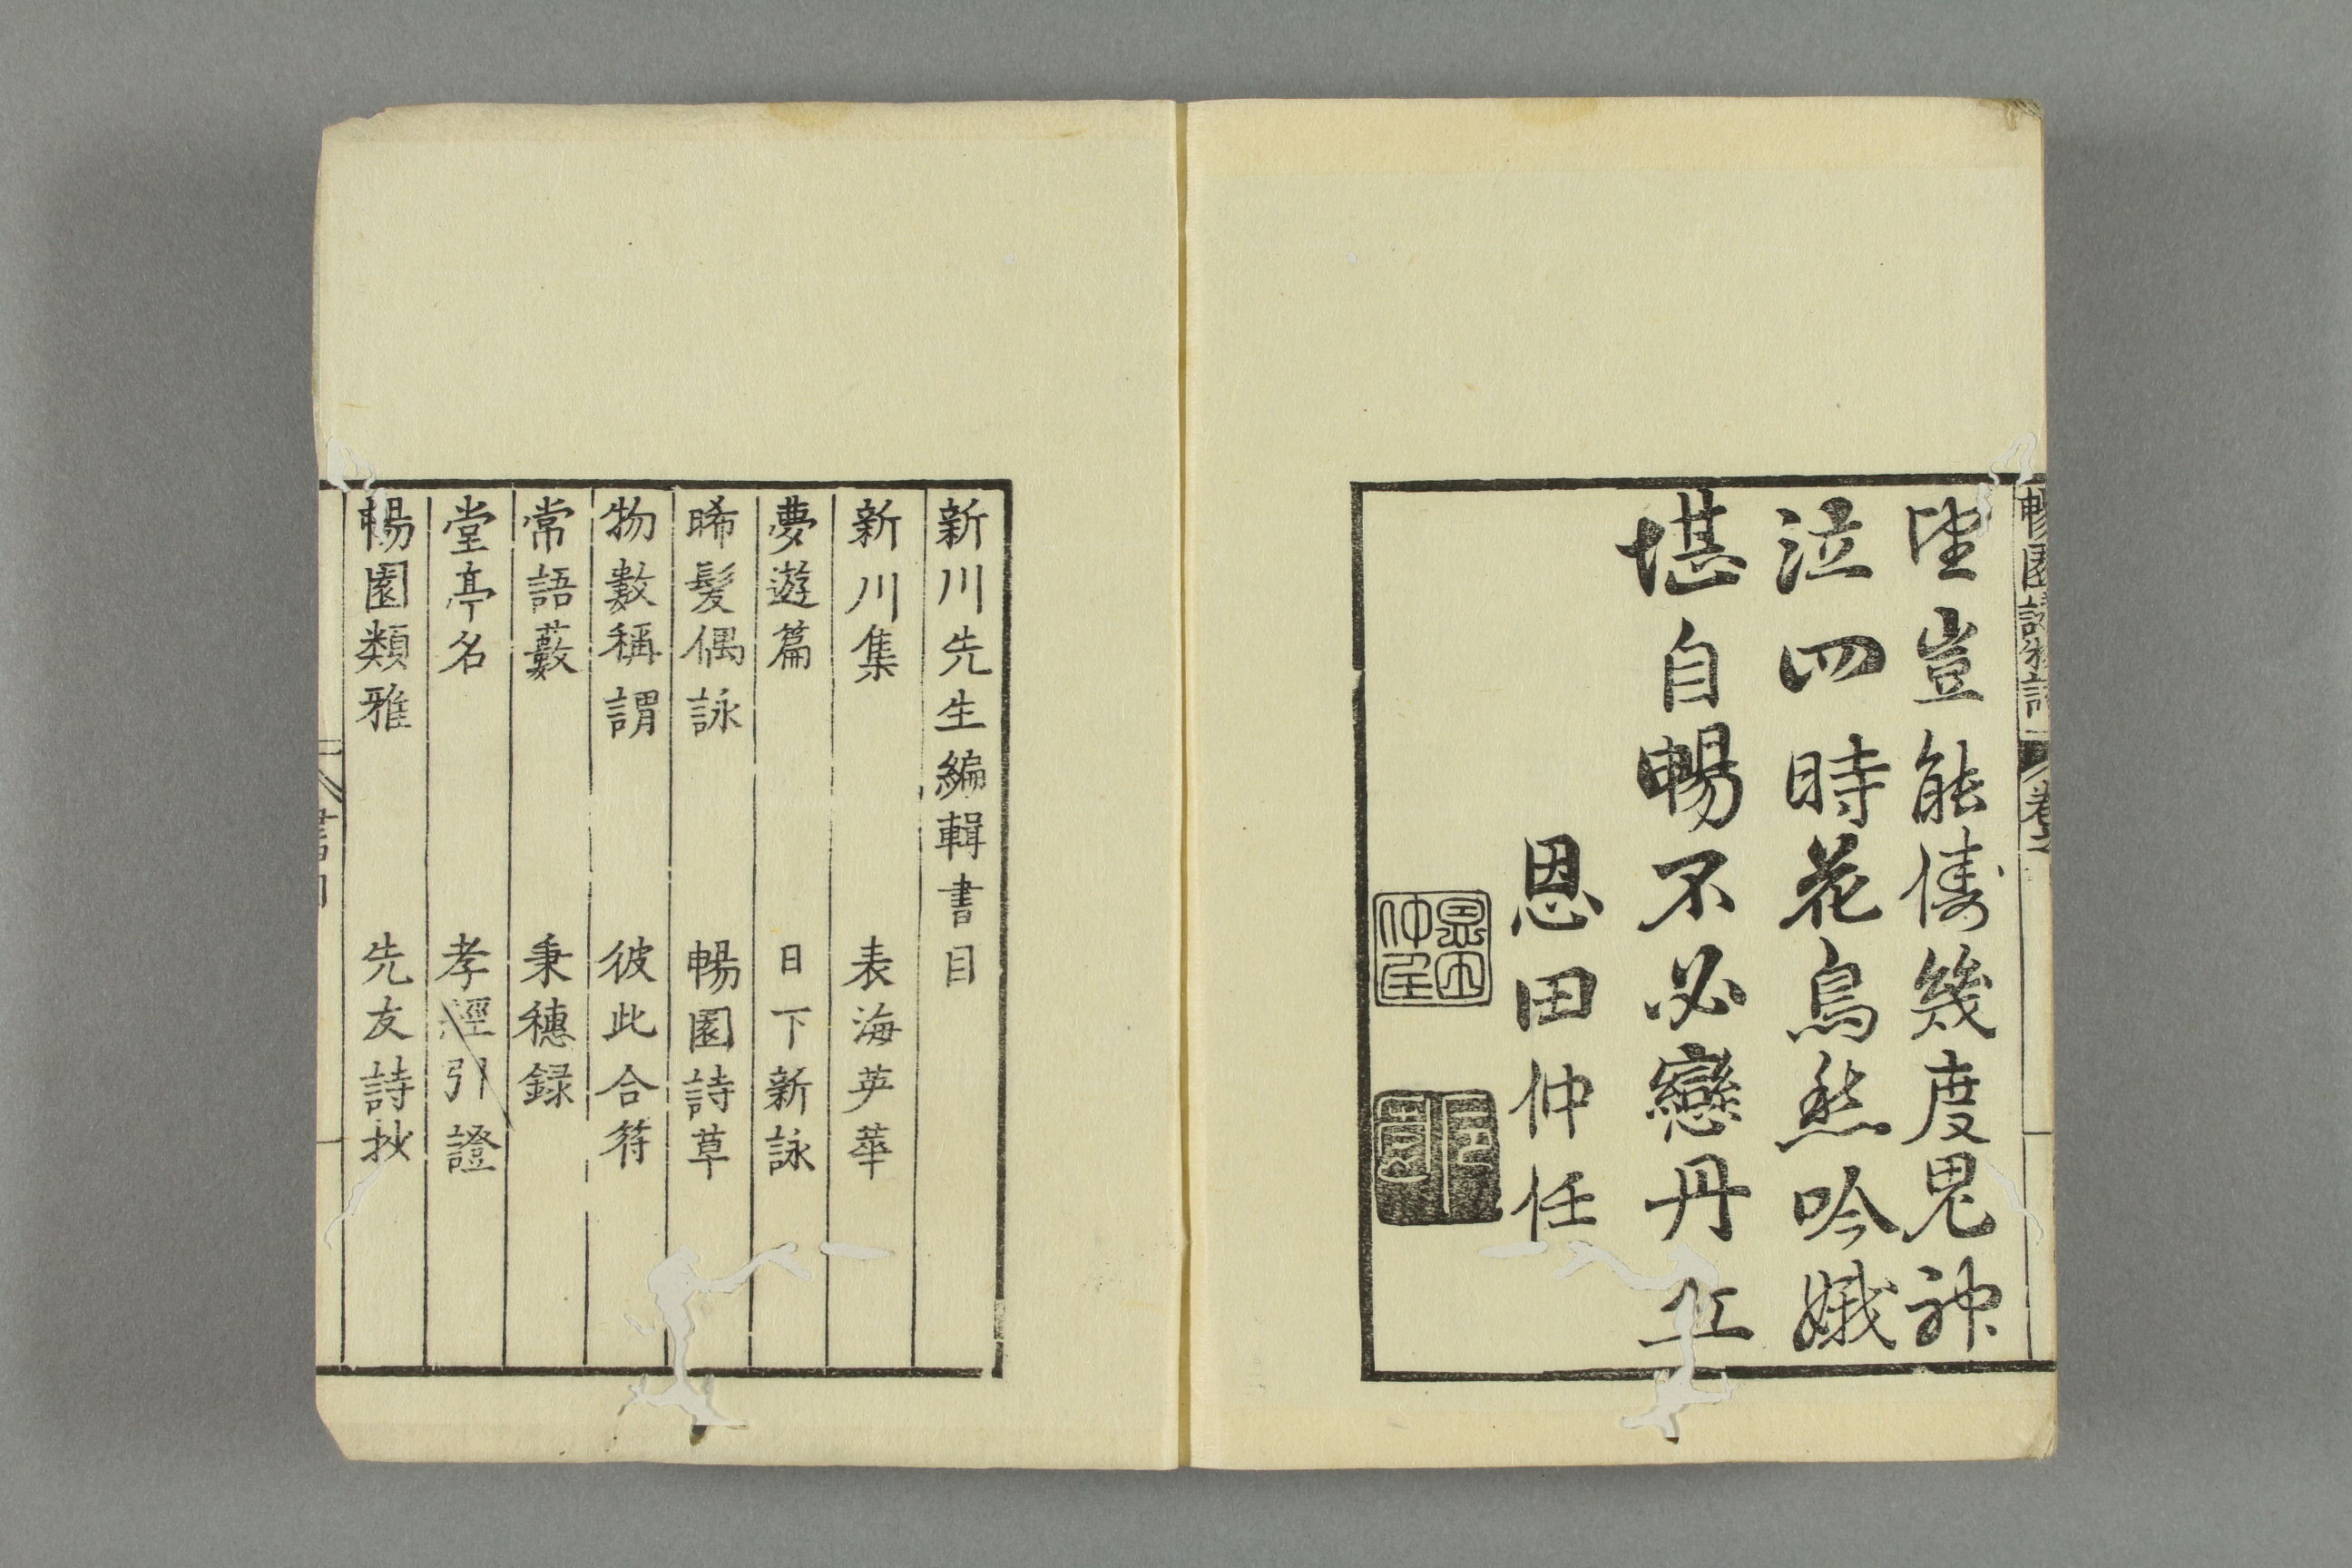 望豈能儔幾度鬼神
泣四時花鳥愁吟娥
堪自暢不必戀丹丘
恩田仲任
新川先生編輯書目
新川集 表海英華
夢遊篇 日下新詠
晞髮偶詠 暢園詩草
物數稱謂 彼此合符
常語藪 秉穗録
堂亭名 孝經引證
暢園類雅 先友詩抄